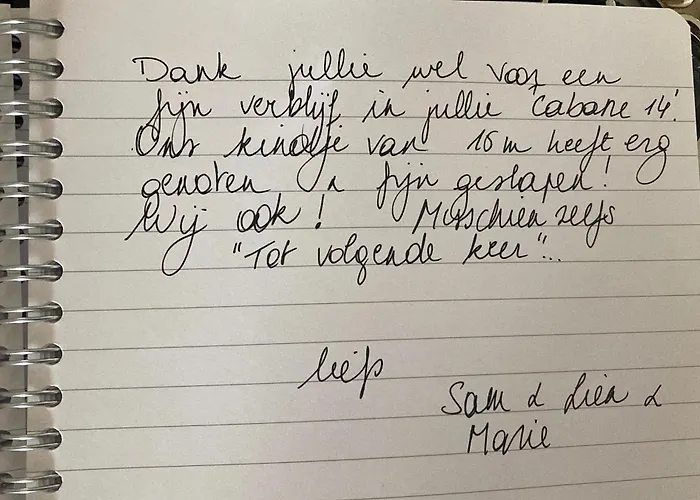 Dank jullie wel voor een
fijn verblijf in jullie "Cabane 14".
Ons kindje van 16 m heeft erg
genoten n fijn geslapen!
Wij ook! Misschien zelfs
"Tot volgende keer"...
liefs
Sam & Lien &
Marie